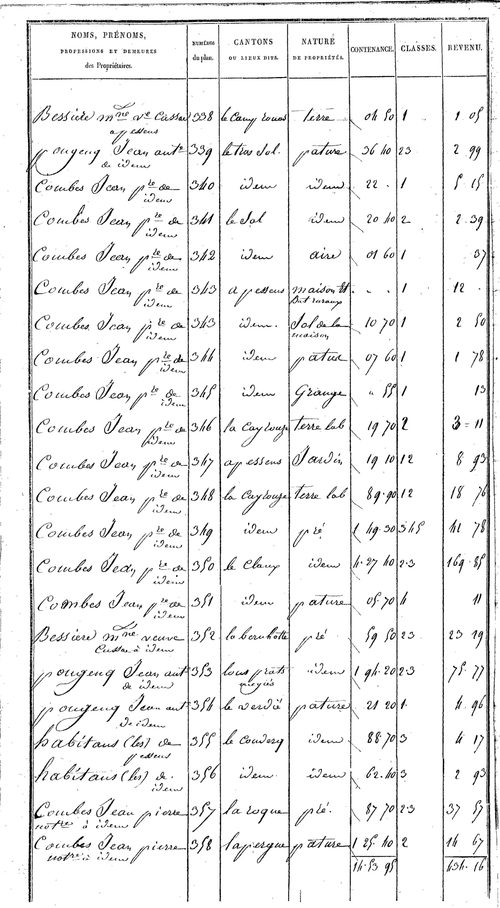 NOMS, PRÉNOMS, PROFESSIONS ET DEMEURES des Propriétaires. NUMÉROS du plan. CANTONS OU LIEUX DITS. NATURE DE PROPRIÉTÉS. CONTENANCE. CLASSES. REVENU.
Bessière mne ve Cassan 338 le Camp rouos terre 04 50 1 1 05
a pessens
pougenq Jean ante 339 le tras sol. pature 36 40 23 2 99
de idem
Combes Jean pre de 340 idem idem 22 . 1 5 15
idem
Combes Jean pre de 341 le sol idem 20 40 2 2 39
idem
Combes Jean pre de 342 idem aire 01 60 1 37
idem
Combes Jean pre de 343 a pessens maison et . . 1 12 .
idem Bat ruraux
Combes Jean pre de 343 idem. Sol de la 10 70 1 2 50
idem maison
Combes Jean pre de 344 idem pature 07 60 1 1 78
idem
Combes Jean pre de 345 idem Grange " 55 1 13
idem
Combes Jean pre de 346 la Cayrouze terre lab 19 70 2 3 = 11
idem
Combes Jean pre de 347 a pessens Jardin 19 10 12 8 93
idem
Combes Jean pre de 348 la Cayrouze terre lab 89.90 12 18 76
idem
Combes Jean pre de 349 idem pré 1 49.30 345 41 78
idem
Combes Jean pre de 350 le Claux idem 4.27 40 2.3 169.85
idem
Combes Jean pre de 351 idem pature 05.70 4 11
idem
Bessière mne veuve 352 pré 59 50 23 23 19
à idem
pougenq Jean ant 353 lous prats idem 1 94.20 2.3 75.77
de idem
pougenq Jean ant 354 le verdié pature 21 20 1. 4 96
de idem
habitans (les) de 355 le Couderq idem 88.70 3 4 17
pessens
habitans (les) de. 356 idem idem 62.40 3 2 93
idem
Combes Jean pierre 357 la roque pré. 87 70 2.3 37 57
notre à idem
Combes Jean pierre 358 la pergue pature 1 25.40 2 14 67
notre à idem
14.53 95 434.16